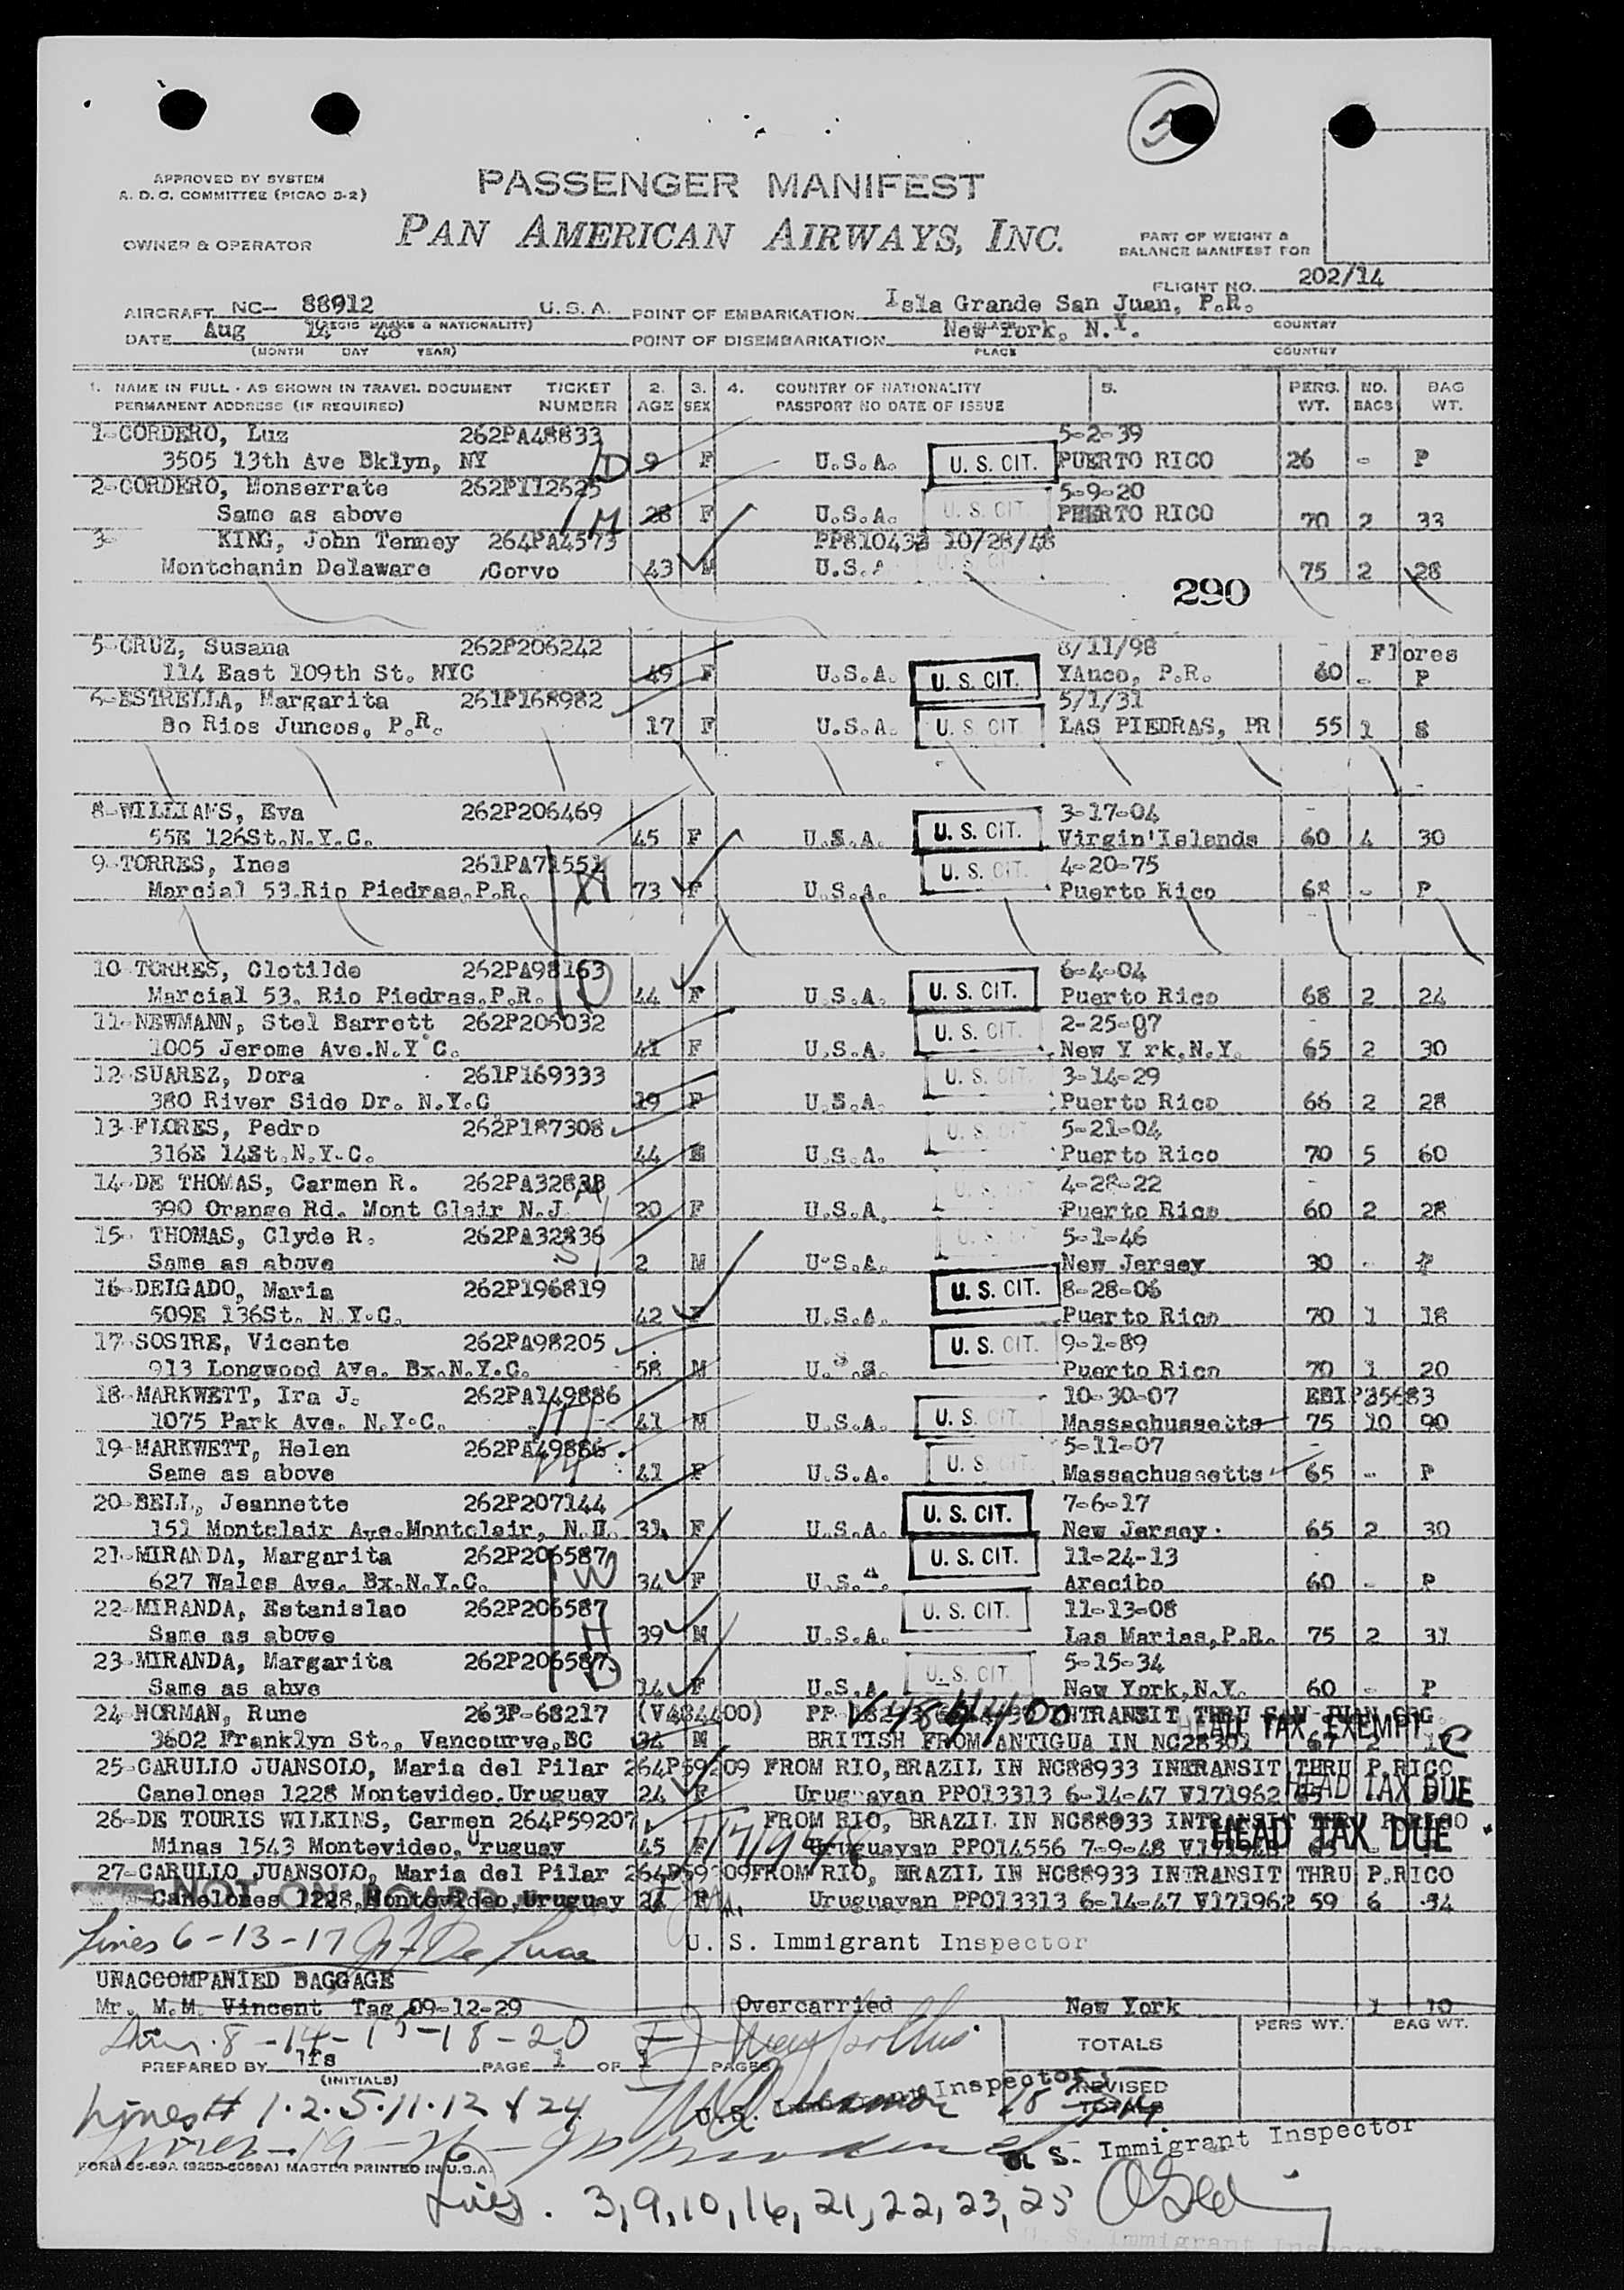 5
APPROVED BY SYSTEM
A. D. C. COMMITTEE (PICAO 3-2)
PASSENGER MANIFEST
OWNER & OPERATOR
PAN AMERICAN AIRWAYS, INC.
PART OF WEIGHT &
BALANCE MANIFEST FOR
FLIGHT NO. 202/14
AIRCRAFT NC- 88912 U.S.A. POINT OF EMBARKATION Isla Grande San Juan, P.R.
(REGIS MARKS & NATIONALITY) PLACE COUNTRY
DATE Aug 14 48 POINT OF DISEMBARKATION New York, N.Y.
(MONTH DAY YEAR) PLACE COUNTRY
1. NAME IN FULL - AS SHOWN IN TRAVEL DOCUMENT TICKET 2. 3. 4. COUNTRY OF NATIONALITY 5. PERS. NO. BAG
PERMANENT ADDRESS (IF REQUIRED) NUMBER AGE SEX PASSPORT NO DATE OF ISSUE WT. BAGS WT.
1-CORDERO, Luz 262PA48833 5-2-39
3505 13th Ave Bklyn, NY D 9 F U.S.A. U. S. CIT. PUERTO RICO 26 - P
2-CORDERO, Monserrate 262P112625 5-9-20
Same as above M 28 F U.S.A. U. S. CIT. PUERTO RICO 70 2 33
3- KING, John Tenney 264PA4573 PP810432 10/28/48
Montchanin Delaware /Corvo 43 M U.S.A 75 2 28
290
5-CRUZ, Susana 262P206242 8/11/98 Flores
114 East 109th St. NYC 49 F U.S.A. U. S. CIT. YAuco, P.R. 60 - P
6-ESTRELLA, Margarita 261P168982 5/1/31
Bo Rios Juncos, P.R. 17 F U.S.A. U. S. CIT LAS PIEDRAS, PR 55 1 8
8-WILLIAMS, Eva 262P206469 3-17-04
55E 126St.N.Y.C. 45 F U.S.A. U. S. CIT. Virgin Islands 60 4 30
9-TORRES, Ines 261PA71551 4-20-75
Marcial 53.Rio Piedras.P.R. M 73 F U.S.A. U. S. CIT. Puerto Rico 68 - P
10 TORRES, Clotilde 262PA98163 6-4-04
Marcial 53. Rio Piedras.P.R. D 44 F U.S.A. U. S. CIT. Puerto Rico 68 2 24
11-NEWMANN, Stel Barrett 262P205032 2-25-07
1005 Jerome Ave.N.Y C. 41 F U.S.A. U. S. CIT. New Y rk.N.Y. 65 2 30
12-SUAREZ, Dora 261P169333 3-14-29
380 River Side Dr. N.Y.C 19 F U.S.A. U. S. CIT. Puerto Rico 66 2 28
13-FLORES, Pedro 262P187308 5-21-04
316E 14St.N.Y.C. 44 U.S.A. U. S. CIT Puerto Rico 70 5 60
14-DE THOMAS, Carmen R. 262PA32838 4-28-22
390 Orange Rd. Mont Clair N.J. 20 F U.S.A. Puerto Rico 60 2 28
15- THOMAS, Clyde R. 262PA32836 5-1-46
Same as above 2 M U.S.A. New Jersey 30 - P
16-DELGADO, Maria 262P196819 8-28-06
509E 136St. N.Y.C. 42 F U.S.A. U. S. CIT. Puerto Rico 70 1 18
17-SOSTRE, Vicente 262PA98205 9-1-89
913 Longwood Ave. Bx.N.Y.C. 58 M U.S.S. U. S. CIT. Puerto Rico 70 1 20
18-MARKWETT, Ira J. 262PA149886 10-30-07 EBIP35683
1075 Park Ave. N.Y.C. H 41 M U.S.A. U. S. CIT. Massachussetts 75 10 90
19-MARKWETT, Helen 262PA49886 5-11-07
Same as above W 41 F U.S.A. U. S. CIT. Massachussetts 65 - P
20-BELL, Jeannette 262P207144 7-6-17
151 Montclair Ave.Montclair, N.J. 31 F U.S.A. U. S. CIT. New Jersey 65 2 30
21-MIRANDA, Margarita 262P206587 11-24-13
627 Wales Ave. Bx.N.Y.C. W 34 F U.S.A. U. S. CIT. Arecibo 60 - P
22-MIRANDA, Estanislao 262P206587 11-13-08
Same as above H 39 M U.S.A. U. S. CIT. Las Marias,P.R. 75 2 31
23-MIRANDA, Margarita 262P206587 5-15-34
Same as abve D 14 F U.S.A U. S. CIT. New York,N.Y. 60 - P
24-NORMAN, Rune 263P-68217 (V484400) V484400 INTRANSIT THRU SAN JUAN HEAD TAX EXEMPT
3602 Franklyn St., Vancourve,BC 34 M BRITISH FROM ANTIGUA IN NC28301 67 2
25-CARULLO JUANSOLO, Maria del Pilar 264P59209 FROM RIO,BRAZIL IN NC88933 INTRANSIT THRU P.RICO
Canelones 1228 Montevideo.Uruguay 24 F Uruguayan PP013313 6-14-47 V171962 HEAD TAX DUE
26-DE TOURIS WILKINS, Carmen 264P59207 FROM RIO, BRAZIL IN NC88933 INTRANSIT THRU P.RICO
Minas 1543 Montevideo, Uruguay 45 F Uruguayan PP014556 7-9-48 HEAD TAX DUE
27-CARULLO JUANSOLO, Maria del Pilar 264P59209FROM RIO, BRAZIL IN NC88933 INTRANSIT THRU P.RICO
NOT ON BOARD
Canelones 1228,Montevideo,Uruguay 24 F Uruguayan PP013313 6-14-47 V171962 59 6 54
Lines 6-13-17
U. S. Immigrant Inspector
UNACCOMPANIED BAGGAGE
Mr. M.M. Vincent Tag 09-12-29 Overcarried New York 1 10
8-14-15-18-20
PERS WT. BAG WT.
TOTALS
PREPARED BY lfs PAGE 1 OF 1 PAGES
(INITIALS)
REVISED
TOTALS
Lines# 1.2.5.11.12 & 24
U.S. Immigrant Inspector
Lines 19-26
U. S. Immigrant Inspector
MASTER PRINTED IN U.S.A.
Lines. 3,9,10,16,21,22,23,25
U. S. Immigrant Inspector